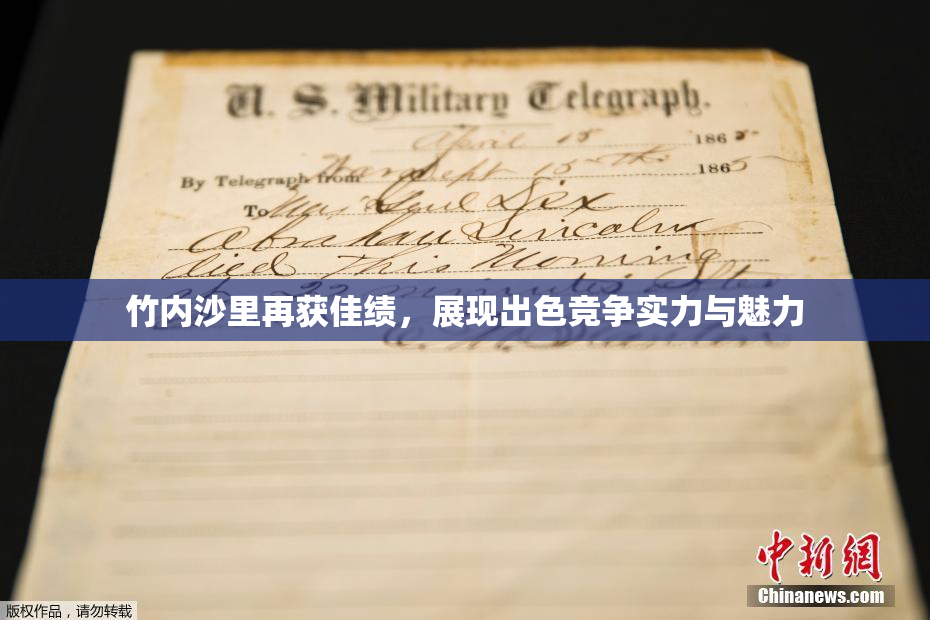 U. S. Military Telegraph.
April 15 1865
By Telegraph from War Dept 15th 1865
To Maj Genl Dix
Abraham Lincoln
died This Morning
at 22 minutes after
竹内沙里再获佳绩，展现出色竞争实力与魅力
E. M. Stanton
中新網
Chinanews.com
版权作品，请勿转载